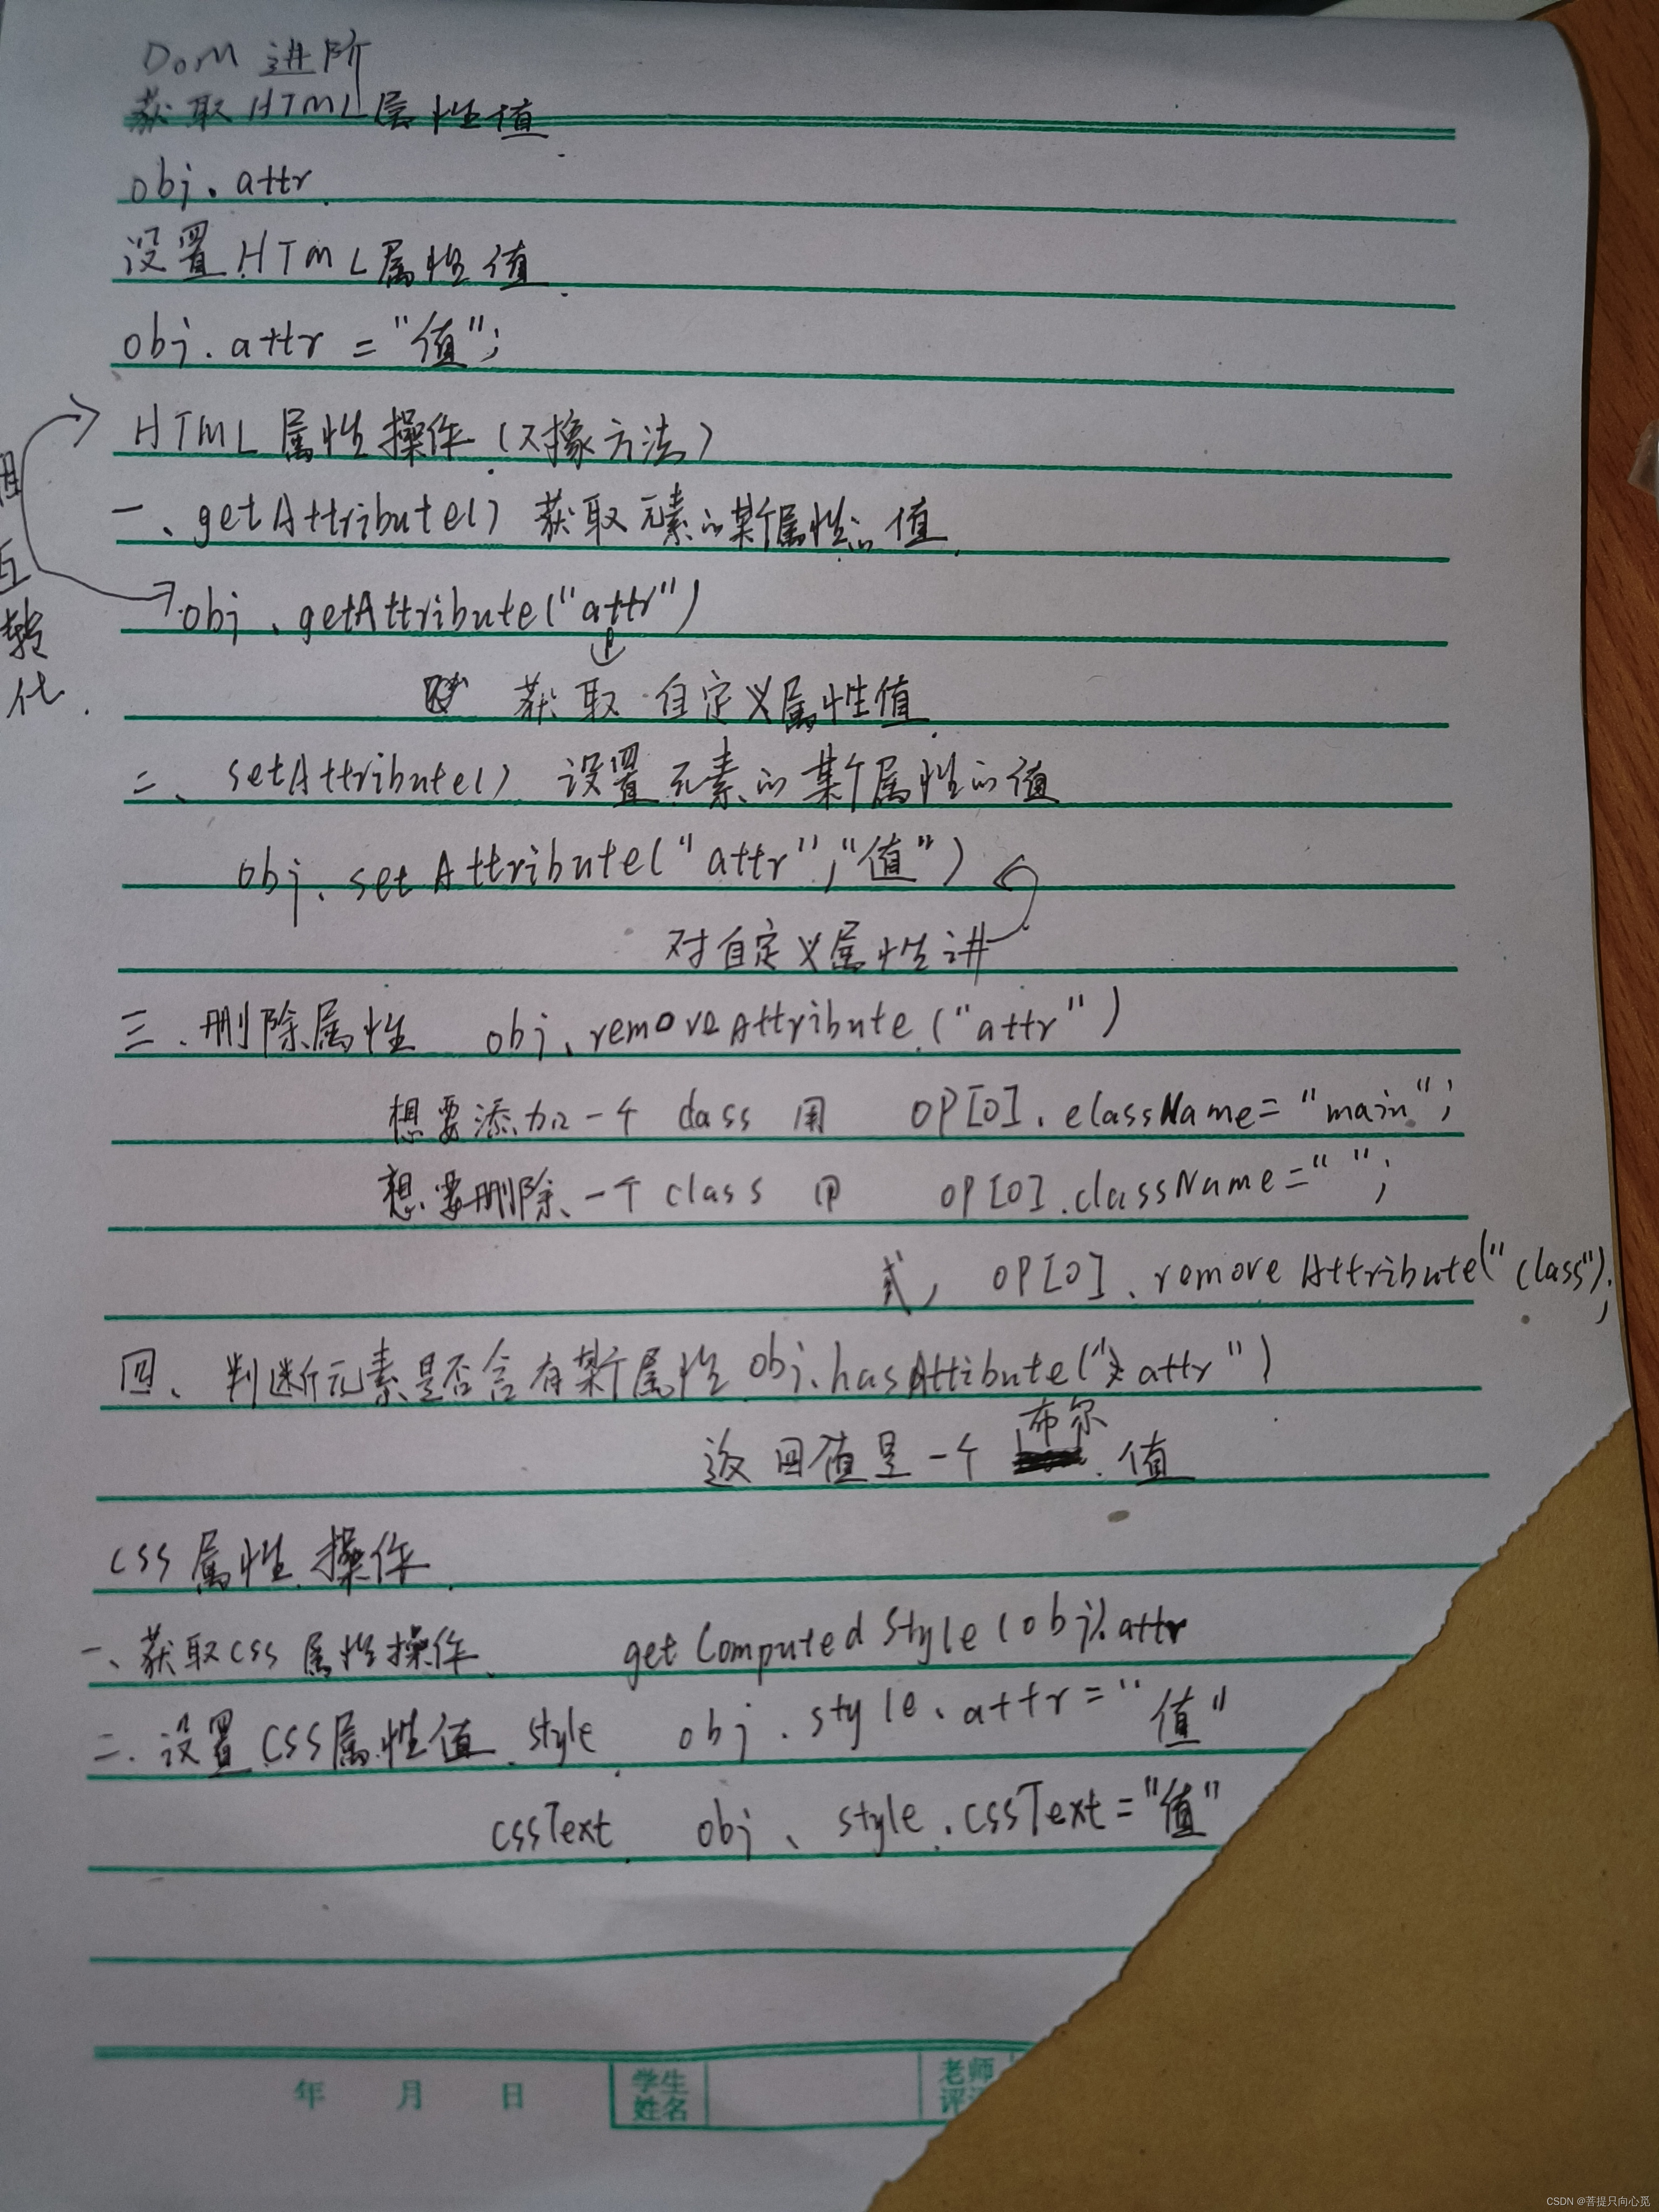 DOM 进阶
获取HTML属性值.
obj.attr.
设置HTML属性值.
obj.attr = "值";
HTML属性操作(对象方法)
一、getAttribute() 获取元素的某个属性的值.
obj.getAttribute("attr")
互
转
化.
获取自定义属性值.
二、setAttribute() 设置元素的某个属性的值
obj.setAttribute("attr","值")
对自定义属性讲
三、删除属性 obj.removeAttribute("attr")
想要添加一个 class 用 oP[0].className="main";
想要删除一个 class 用 oP[0].className="";
或, oP[0].removeAttribute("class");
四、判断元素是否含有某个属性 obj.hasAttibute("attr")
返回值是一个布尔值
CSS属性操作.
一、获取css属性操作. getComputedStyle(obj).attr
二.设置CSS属性值.style obj.style.attr="值"
cssText. obj.style.cssText="值"
年 月 日 学生姓名 老师
CSDN @菩提只向心觅